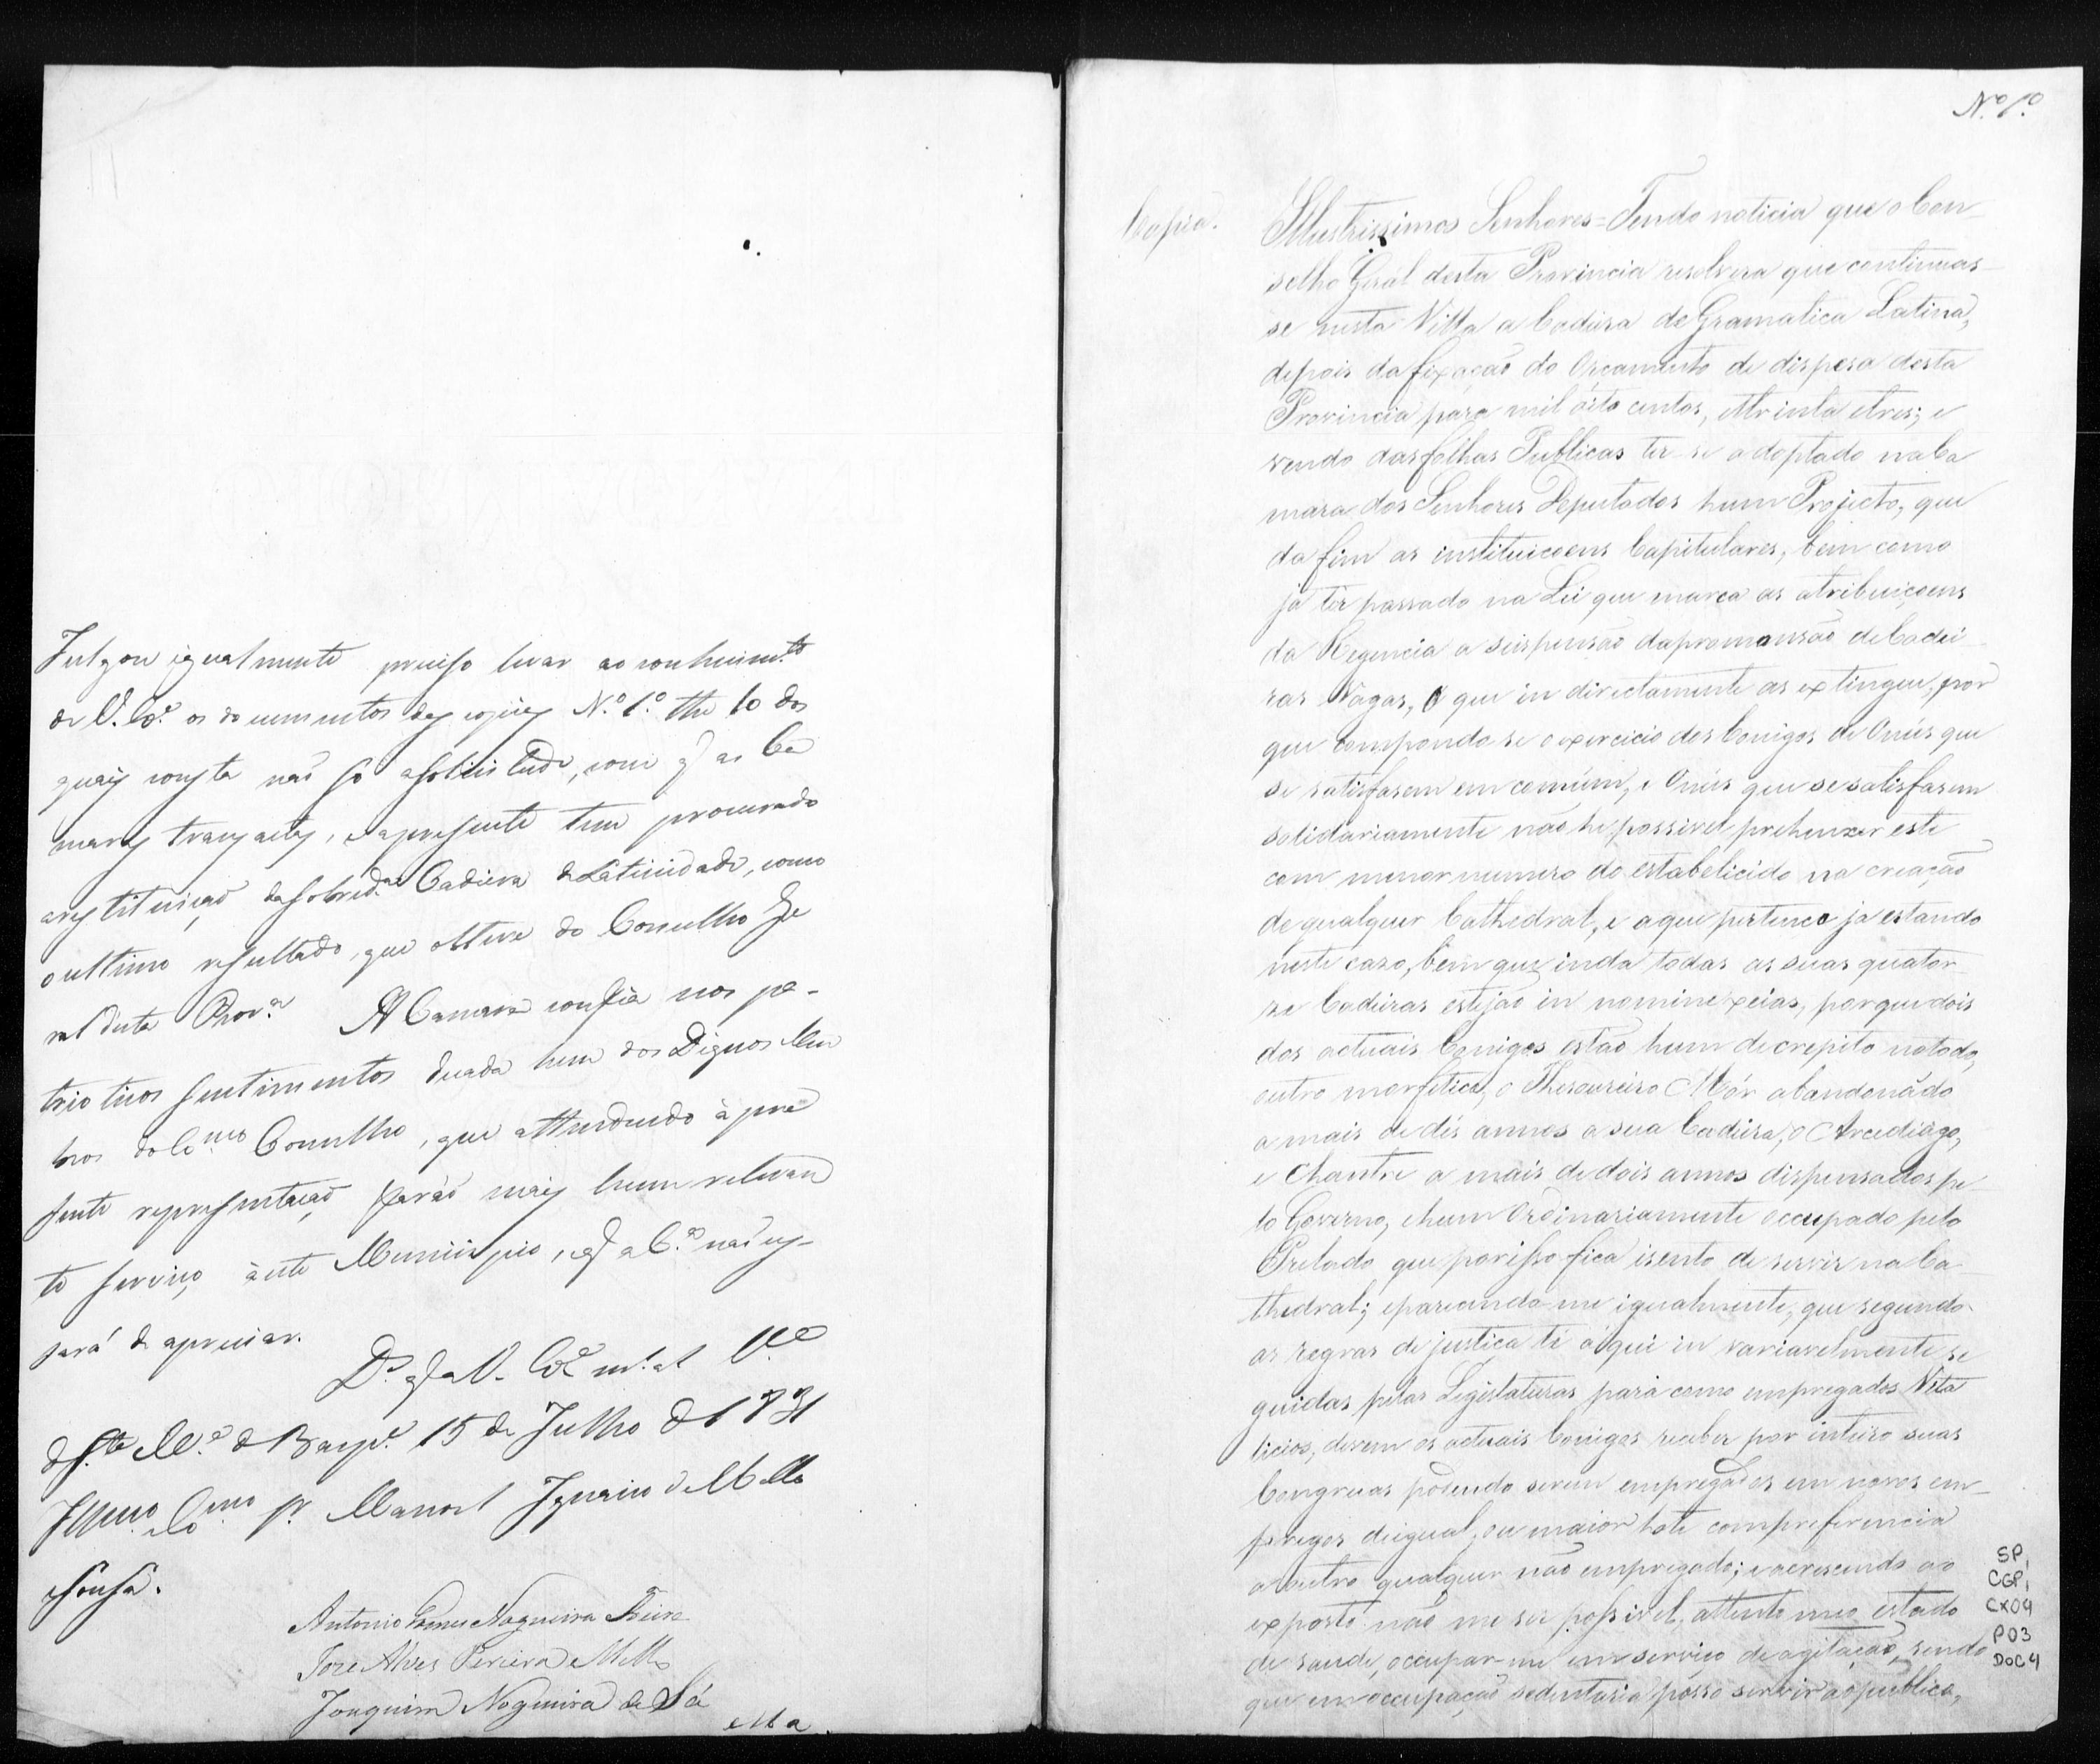 Julgou igualmente preciso levar ao conhecim.to
de V. Ex.ª os documentos das copias N.º 1.º the 10 dos
quais consta não só a solicitude, com q as Ca
maras transactas, e a presente tem procurado
a restituição da sobred.ª Cadeira de Latinidade, como
o ultimo resultado, que obteve do Conselho Ge
ral desta Prov.ª A Camara confia nos pa-
trioticos sentimentos de cada hum dos Dignos Mem
bros do Ex.mo Conselho, que attendendo à pre
sente representação farão mais hum relevan
te serviço, à este Municipio, e q a C.ª não ces-
sará de apreciar.
D.s g.e a V. Ex.ª m.s a.s V.ª
de S.ta M.ª de Baep.di 15 de Julho de 1831
Illmo. e Ex.mo Sr. Manoel Ignacio de Mello
e Sousa.
Antonio Gomes Nogueira Freire
Joze Alves Pereira e Mello
Joaquim Nogueira de Sá
N.º 1.º
Copia.
Illustrissimos Senhores = Tendo noticia que o Con-
selho Geral desta Provincia resolvera que continuas-
se nesta Villa a Cadeira de Gramatica Latina,
depois da fixação do Orçamento de dispesa desta
Provincia para mil óito centos, e trinta e tres; e
vendo das folhas Publicas ter-se adoptado na Ca
mara dos Senhores Deputados hum Projecto, que
da fim as instituiçoens Capitulares, bem como
já ter passado na Lei que marca as atribuiçoens
da Regencia a suspensão da promonsão de Cadei-
ras Vagas, o que in directamente as extingue, por
que compondo se o exercicio dos Conigos de Onús que
se satisfasem em comúm, e Onús que se satisfasem
solidariamente não he possivel prehenxer este
com menor numero do estabelicido na creação
de qualquer Cathedral, e a que pertenco ja estando
neste cazo, bem que inda todas as suas quator
ze Cadeiras estejão in nomine xeias, porque dois
dos actuais Conigos estão hum decrepito notodo,
outro morfetico, o Thesoureiro Mór abandonádo
a mais de dés annos a sua Cadeira, o Arcediágo,
e Chantre a mais de dois annos dispensados pe
lo Governo, e hum Ordinariamente occupado pelo
Prelado que por isso fica isento de servir na Ca-
thedral; e parecendo-me igualmente, que segundo
as regras de justica té áqui in variavelmente se
guidas pelas Legislaturas para como empregados Vita
licios, devem os actuais Conigos receber por inteiro suas
Congruas podendo serem empregados em novos em-
pregos de igual, ou maior lote com preferencia
a outro qualquer não empregado; e acrescendo ao
exposto não me ser possivel, attento meo estado
de saude, occupar-me em serviço de agitação, sendo
que em occupação sedentaria posso servir ao publico,
SP,
CGP,
CX04
P03
DOC4